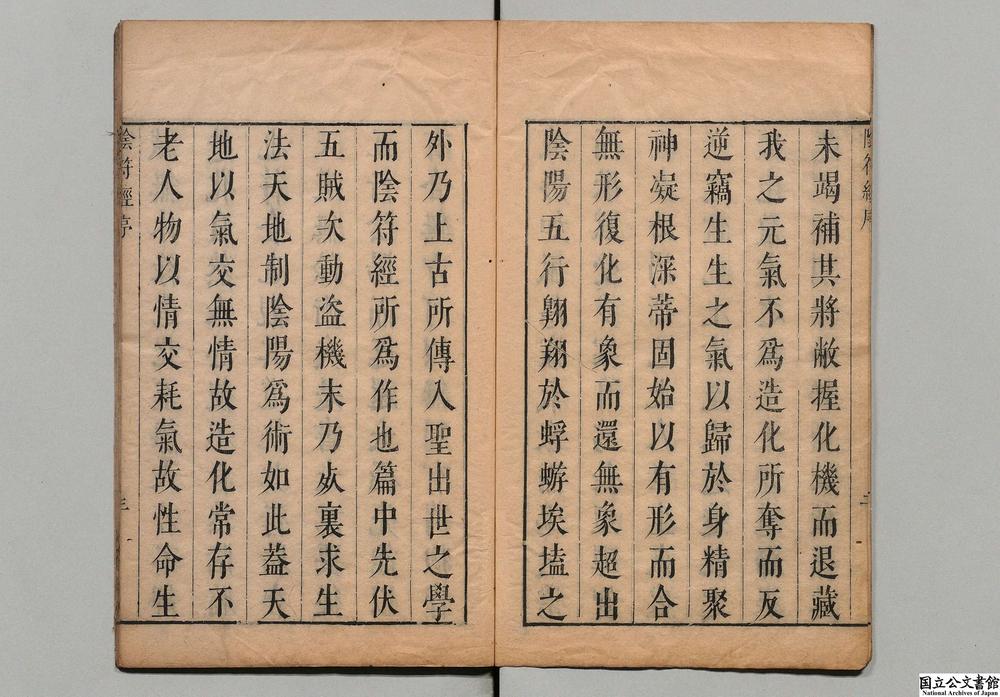 陰符經序
二
未竭補其將敝握化機而退藏
我之元氣不爲造化所奪而反
逆竊生生之氣以歸於身精聚
神凝根深蒂固始以有形而合
無形復化有象而還無象超出
陰陽五行翺翔於蜉蝣埃壒之
外乃上古所傳入聖出世之學
而陰符經所爲作也篇中先伏
五賊次動盜機末乃㱕裏求生
法天地制陰陽爲術如此葢天
地以氣交無情故造化常存不
老人物以情交耗氣故性命生
陰符經序
三
国立公文書館
National Archives of Japan